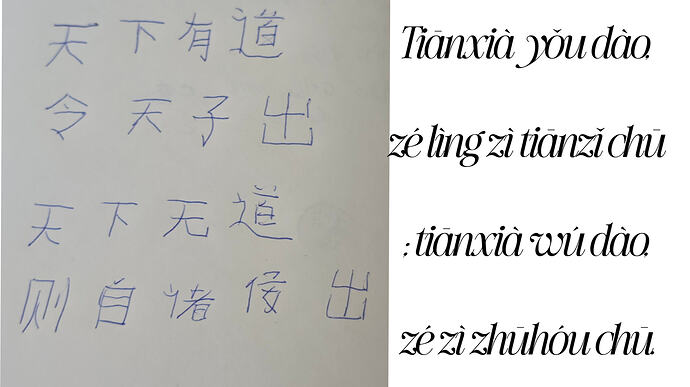 天下有道
令天子出
天下无道
则自诸侯出
Tiānxià yǒu dào,
zé lìng zì tiānzǐ chū
; tiānxià wú dào,
zé zì zhūhóu chū.